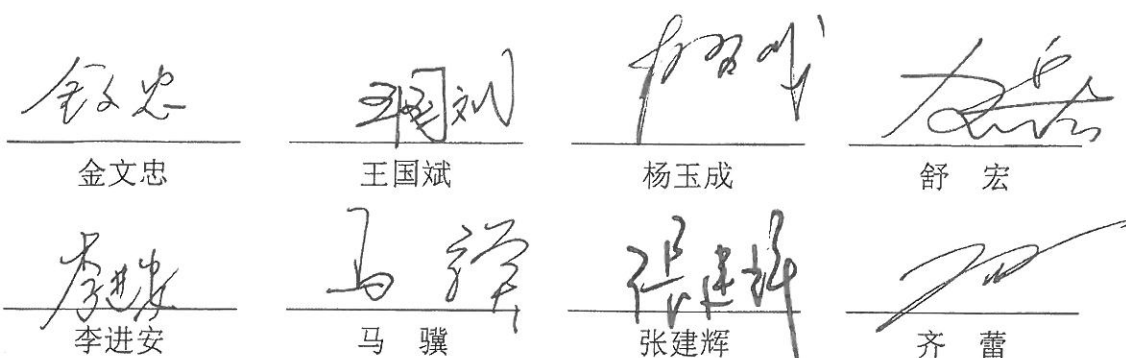 金文忠 王国斌 杨玉成 舒 宏
李进安 马 骥 张建辉 齐 蕾